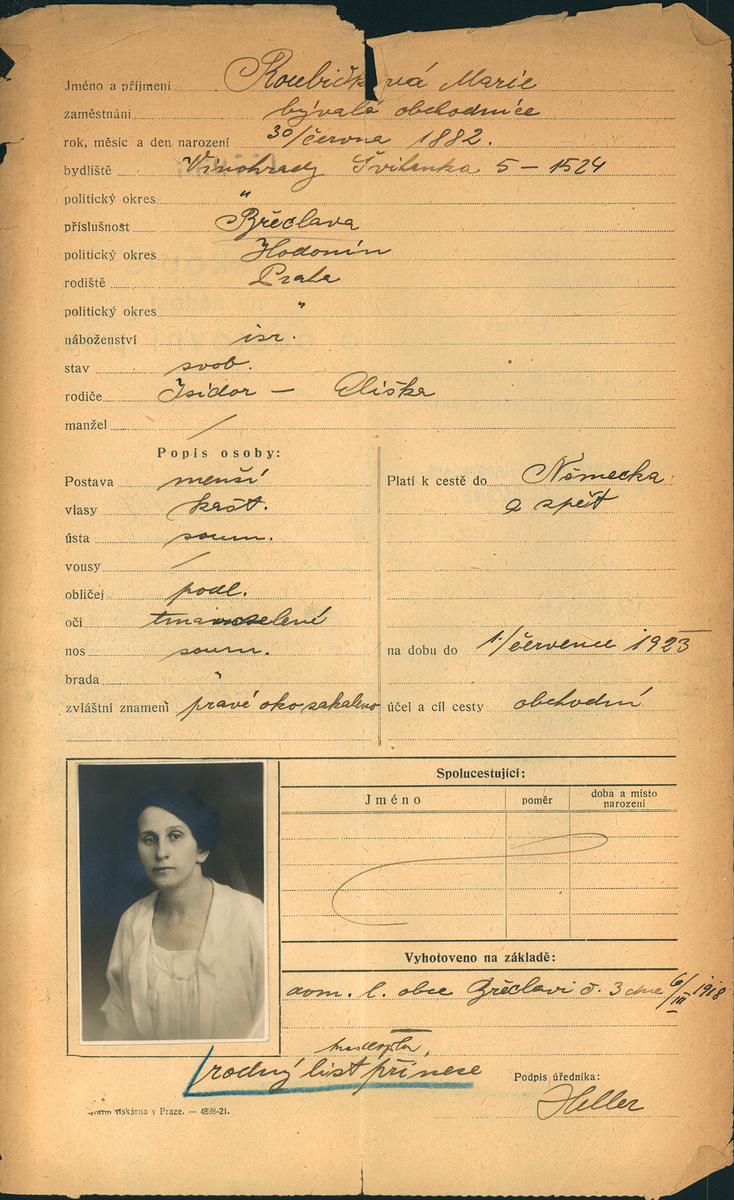 Jméno a příjmení Roubíčková Marie
zaměstnání bývalá obchodnice
rok, měsíc a den narození 30/června 1882.
bydliště Vinohrady 5 – 1524
politický okres "
příslušnost Břeclava
politický okres Hodonín
rodiště Praha
politický okres "
náboženství isr.
stav svob.
rodiče Isidor — Eliška
manžel /
Popis osoby:
Postava menší
vlasy kašt.
ústa soum.
vousy /
obličej podl.
oči tmavozelené
nos soum.
brada "
zvláštní znamení pravé oko zakaleno
Platí k cestě do Německa
a zpět
na dobu do 1./července 1923
účel a cíl cesty obchodní
Spolucestující:
Jméno poměr doba a místo
narození
Vyhotoveno na základě:
dom. l. obce Břeclavi č. 3 dne 6/III 1918
rodný list přinese
Podpis úředníka:
Heller
tiskárna v Praze. — 4898-21.